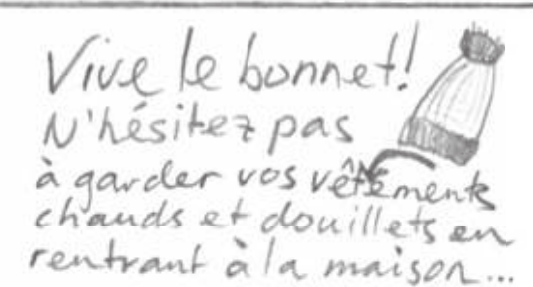 Vive le bonnet!
N'hésitez pas
à garder vos vêtements
chauds et douillets en
rentrant à la maison...